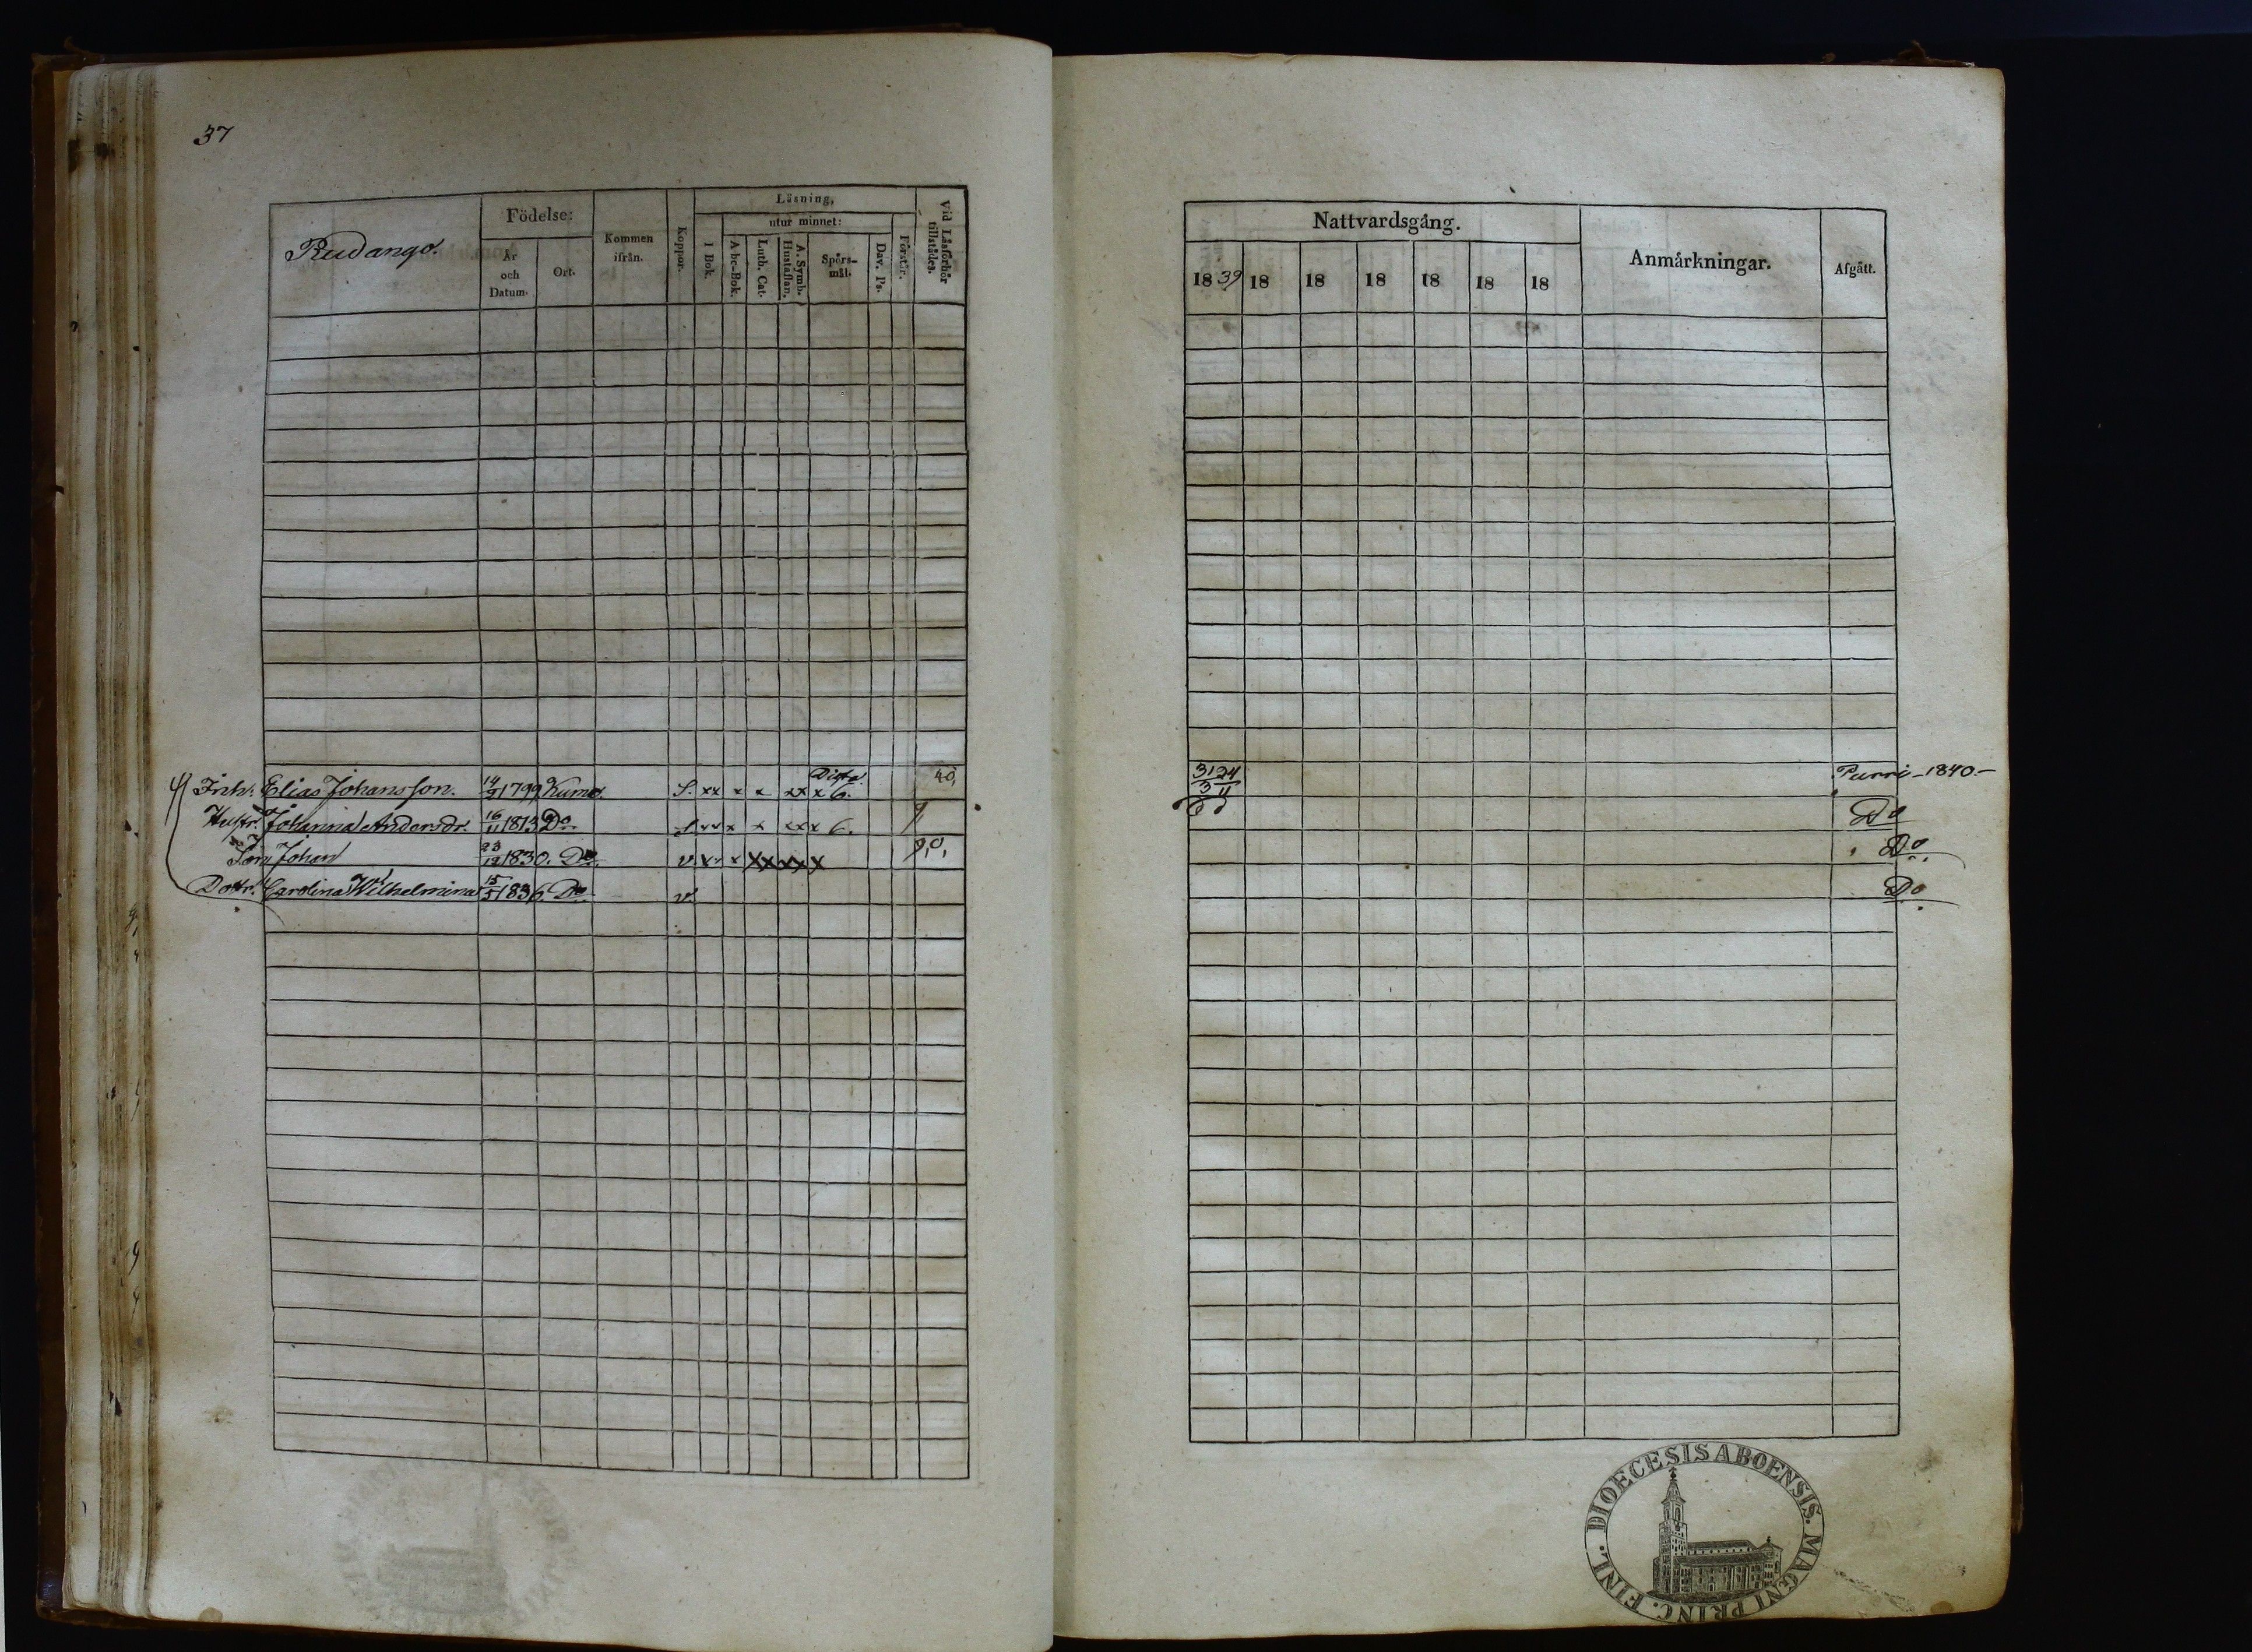 37
Rudango.
Födelse:
År och Datum.
Ort.
Kommen ifrån.
Koppor.
Läsning,
I Bok.
utur minnet:
A bc-Bok.
Luth. Cat.
A. Symb. Hustaflan.
Spörsmål.
Dav. Ps.
Förstår.
Vid Läsförhör tillstådes.
Inh. Elias Johansson. 14/9 1799 Kumo. S. xx x x xx x 6. Digta. 40,
Hustr. Johanna Andersdr. 16/11 1813 Do S xx x x xx x 6. 9
Son Johan 23/12 1830. Do v x x x xx xx x 9,0,
Dottr. Carolina Wilhelmina 15/5 1836. Do v.
Nattvardsgång.
1839 18 18 18 18 18 18
Anmärkningar.
Afgått.
31 24
3 11
Purri 1840.
Do
Do
Do
DIOECESIS ABOENSIS. MAGNI PRINC. FINL.